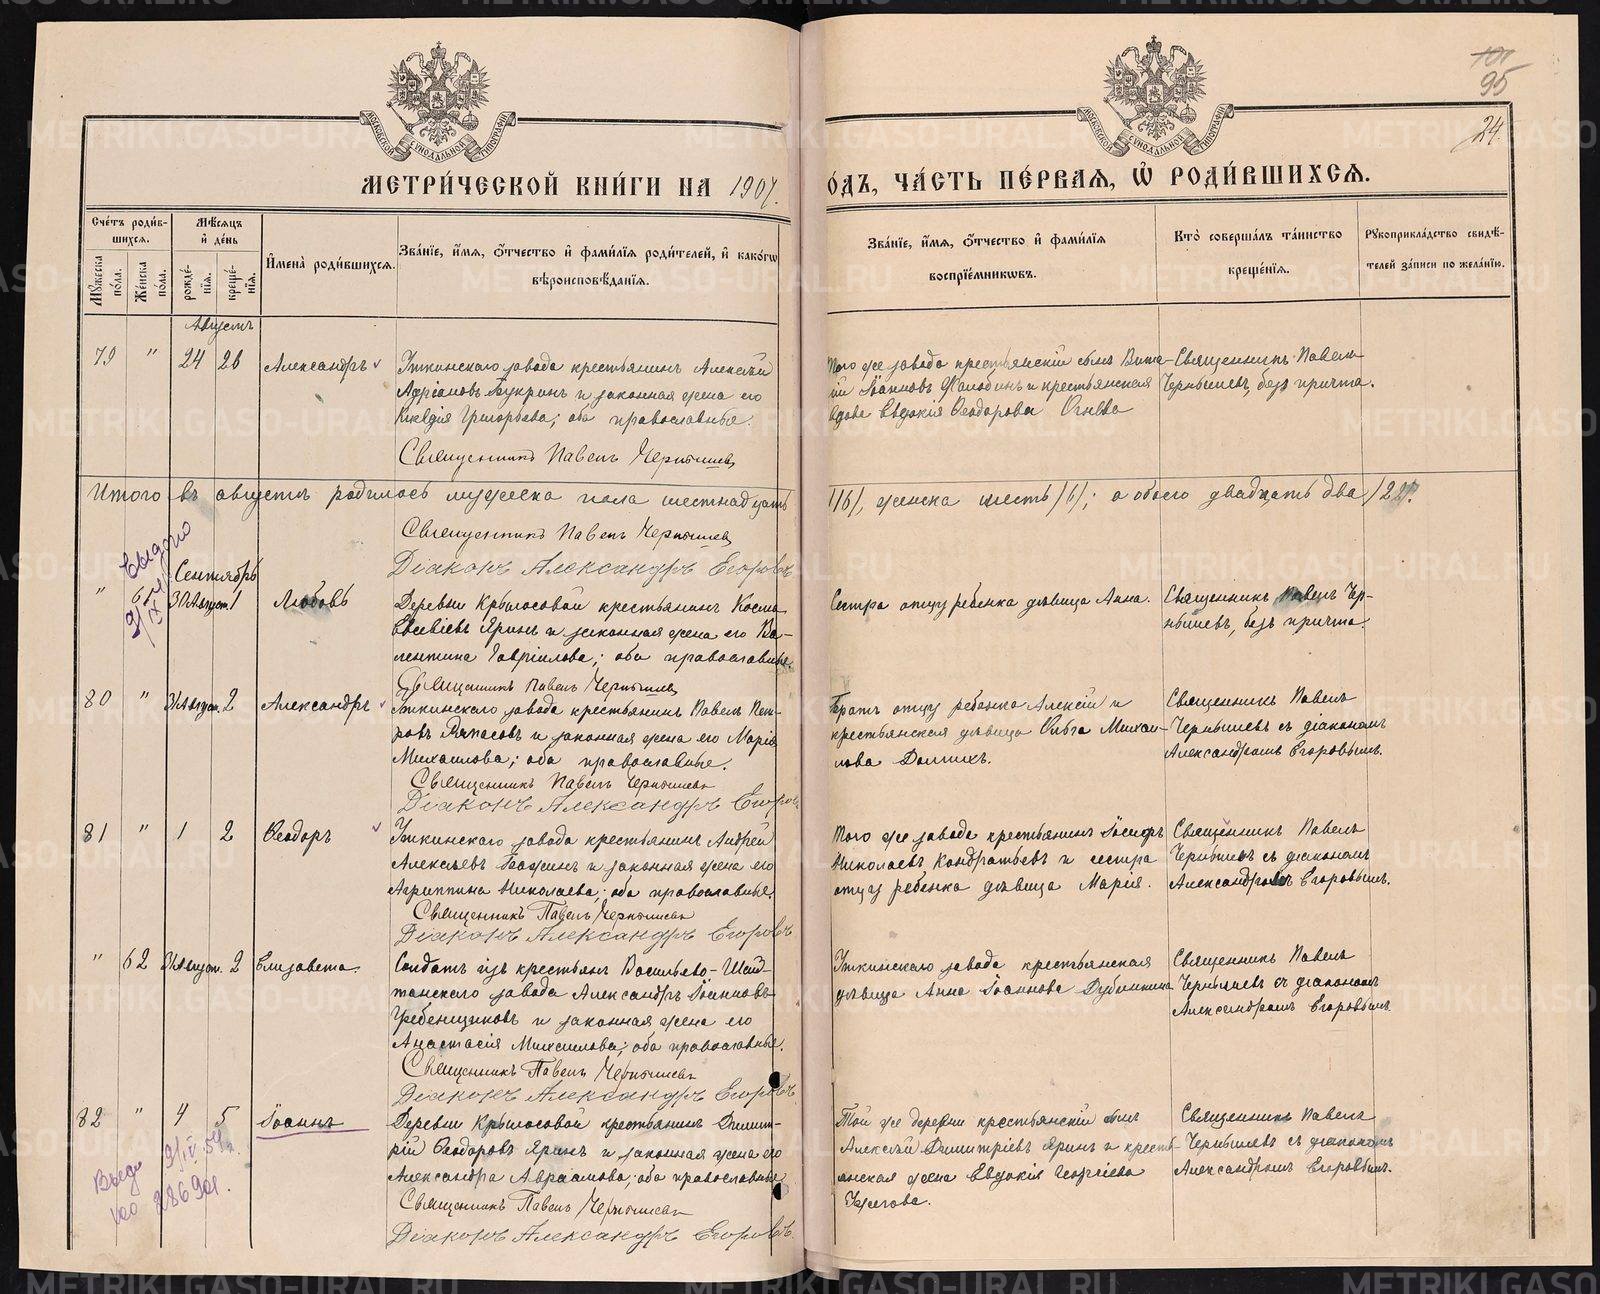 101
95
24
МОСКОВСКОЙ СѴНОДАЛЬНОЙ ТИПОГРАФІИ
МОСКОВСКОЙ СѴНОДАЛЬНОЙ ТИПОГРАФІИ
МЕТРИ́ЧЕСКОЙ КНИ́ГИ НА 1907.
О́ДЪ, ЧА́СТЬ ПЕ́РВАЯ, Ѡ҆ РОДИ́ВШИХСЯ.
Сче́тъ роди́в-
шихся.
Му́жеска по́ла.
Же́нска по́ла.
Мѣ́сяцъ
и҆ де́нь
рожде́-
нїя.
креще́-
нїя.
И҆мена̀ роди́вшихся.
Зва́нїе, и҆́мя, ѻ҆́тчество и҆ фами́лїя роди́телей, и҆ како́гѡ
вѣроисповѣ́данїя.
Зва́нїе, и҆́мя, ѻ҆́тчество и҆ фами́лїя
воспрїе́мникѡвъ.
Кто̀ соверша́лъ та́инство
креще́нїя.
Рꙋкоприкла́дство свидѣ́-
телей за́писи по жела́нїю.
Августъ
79 " 24 26 Александръ
Уткинскаго завода крестьянинъ Алексѣй
Адріановъ Букринъ и законная жена его
Клавдія Григорьева; оба православные.
Священникъ Павелъ Чернышевъ
Того же завода крестьянскій сынъ Вита-
лій Іоанновъ и крестьянская
вдова Евдокія Ѳеодорова Огнева
Священникъ Павелъ
Чернышевъ, безъ причта.
Итого въ августѣ родилось мужеска пола шестнадцать
/16/, женска шесть /6/; а обоего двадцать два /22/.
Священникъ Павелъ Чернышевъ
Діаконъ Александръ Егоровъ
Выдано
Сентябрь
" 61 30 Август. 1 Любовь
Деревни Крылосовой крестьянинъ Косма
Евсевіевъ Яринъ и законная жена его Ва-
лентина Гавріилова; оба православные.
Священникъ Павелъ Чернышевъ
Сестра отцу ребенка дѣвица Анна.
Священникъ Павелъ Чер-
нышевъ, безъ причта.
80 " 31 Август. 2 Александръ
Уткинскаго завода крестьянинъ Павелъ Пет-
ровъ и законная жена его Марія
Михаилова; оба православные.
Священникъ Павелъ Чернышевъ
Діаконъ Александръ Егоровъ
Братъ отцу ребенка Алексій и
крестьянская дѣвица Ольга Михаи-
лова Долгихъ.
Священникъ Павелъ
Чернышевъ съ діакономъ
Александромъ Егоровымъ.
81 " 1 2 Ѳеодоръ
Уткинскаго завода крестьянинъ Андрей
Алексѣевъ Бажинъ и законная жена его
Агриппина Николаева; оба православные.
Священникъ Павелъ Чернышевъ
Діаконъ Александръ Егоровъ
Того же завода крестьянинъ Іосифъ
Николаевъ Кондратьевъ и сестра
отцу ребенка дѣвица Марія.
Священникъ Павелъ
Чернышевъ съ діакономъ
Александромъ Егоровымъ.
" 62 31 Август. 2 Елизавета.
Солдатъ изъ крестьянъ Васильево-Шай-
танскаго завода Александръ Іоанновъ
Гребенщиковъ и законная жена его
Анастасія Михаилова; оба православные.
Священникъ Павелъ Чернышевъ
Діаконъ Александръ Егоровъ
Уткинскаго завода крестьянская
дѣвица Анна Іоаннова Дубинкина
Священникъ Павелъ
Чернышевъ съ діакономъ
Александромъ Егоровымъ.
82 " 4 5 Іоаннъ
Деревни Крылосовой крестьянинъ Димит-
рій Ѳеодоровъ Яринъ и законная жена его
Александра Авраамова; оба православные
Священникъ Павелъ Чернышевъ
Діаконъ Александръ Егоровъ
Той же деревни крестьянскій сынъ
Алексѣй Димитріевъ Яринъ и кресть-
янская жена Евдокія Георгіева
Священникъ Павелъ
Чернышевъ съ діакономъ
Александромъ Егоровымъ.
METRIKI.GASO-URAL.RU